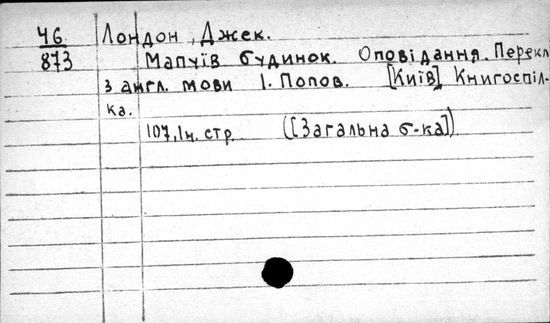 Ч6.
873
Лондон, Джек.
Мапуїв будинок. Оповідання. Перекл
з англ. мови І. Попов. [Київ] Книгоспіл-
ка.
107, Iн. стр. ([Загальна б-ка])